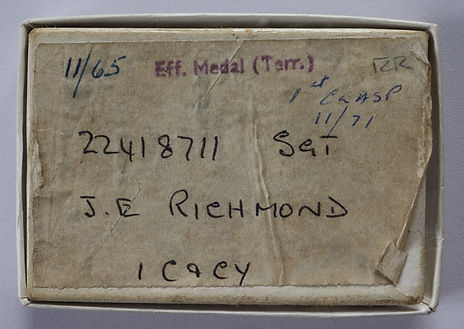 11/65 Eff. Medal (Terr.) RR
1st CLASP
11/71
22418711 SGT
J.E RICHMOND
1 C & CY